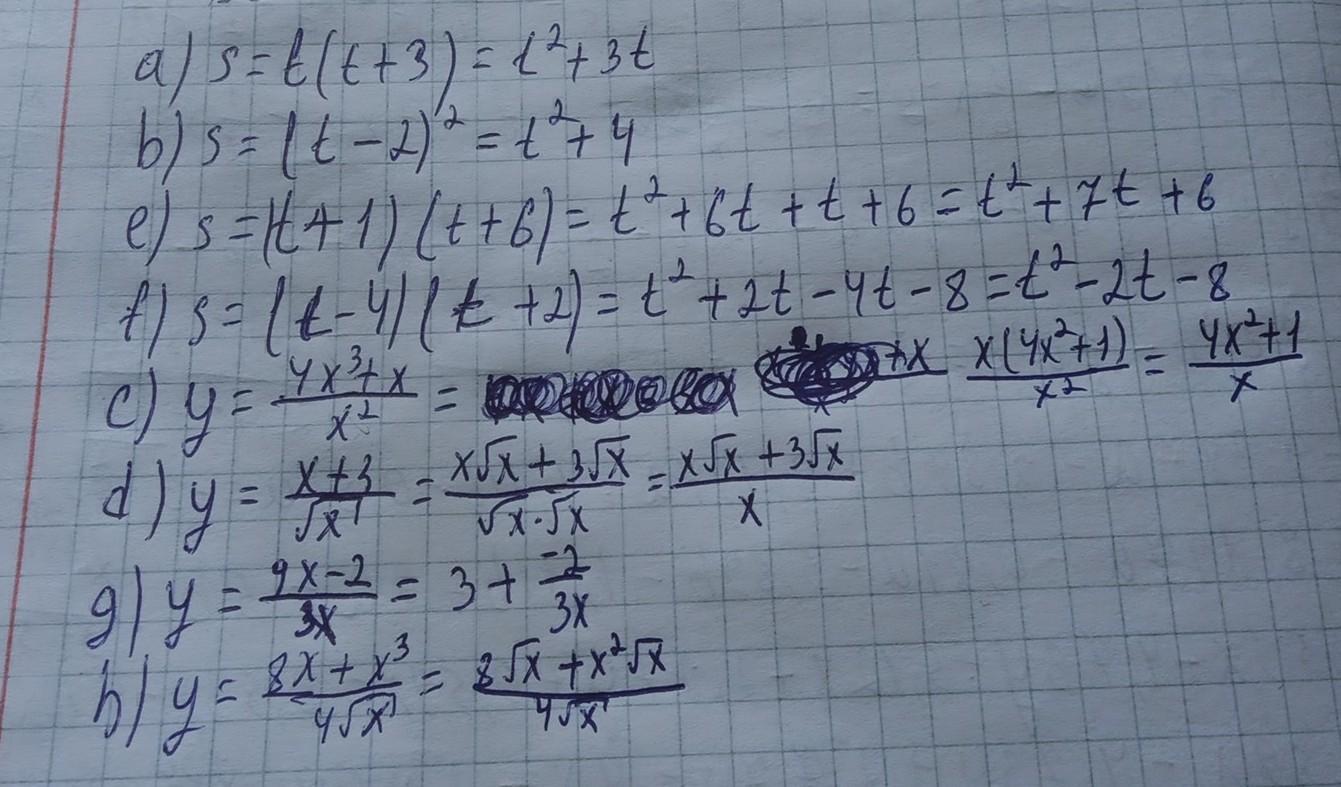 a) s = t(t+3) = t² + 3t
b) s = (t-2)² = t² + 4
e) s = (t+1)(t+6) = t² + 6t + t + 6 = t² + 7t + 6
f) s = (t-4)(t+2) = t² + 2t - 4t - 8 = t² - 2t - 8
c) y = (4x³+x)/x² = +x x(4x²+1)/x² = (4x²+1)/x
d) y = (x+3)/√x = (x√x + 3√x)/(√x·√x) = (x√x + 3√x)/x
g) y = (9x-2)/3x = 3 + -2/3x
h) y = (8x + x³)/4√x = (8√x + x²√x)/4√x